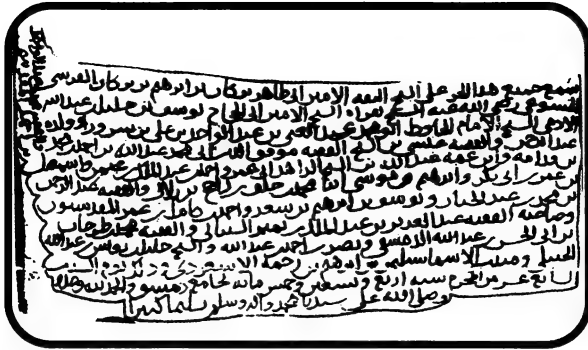 سمع جميع هذا الجزء على الشيخ الثقة الامين ابي طاهر بركات بن ابرهيم بن بركات القرسي
الخشوعي رضي الله عنه بقراءة الشيخ الامين ابي الحجاج يوسف بن خليل بن عبد الله
الادمي الشيخ الامام الحافظ ابو محمد عبد الغني بن عبد الواحد بن علي بن سرور وولده
عبد الرحمن والفقيه عيسى بن الشيخ الفقيه موفق الدين ابي محمد عبد الله بن احمد بن محمد
بن قدامة وابن عمه عبد الله بن الشيخ الزاهد ابي عمر واحمد بن عبد الملك بن عثمن واسمعيل
بن عمر بن ابي بكر وابرهيم وموسى ابنا محمد بن خلف بن راجح بن بلال والفقيه عبد الرحمن
بن محمد بن عبد الجبار ويوسف بن ابرهيم بن سعد واحمد بن كامل بن عمر المقدسيون
وصاحبه الفقيه عبد العزيز بن عبد الملك بن تميم الشيباني والفقيه محمد بن طرخان
بن ابي الحسن عبد الله الدمشقي ونصر بن احمد بن عبد الله والشيخ خليل بن يونس بن عبد الله
الحنبلي ومثبت الاسما سليمن بن ابرهيم بن رحمة الاسعردي وذلك يوم السبت
السابع عشر من المحرم سنة اربع وتسعين وخمس مائة بجامع دمشق والحمد لله وحده
وصلى الله على سيدنا محمد واله وسلم تسليما كثيرا